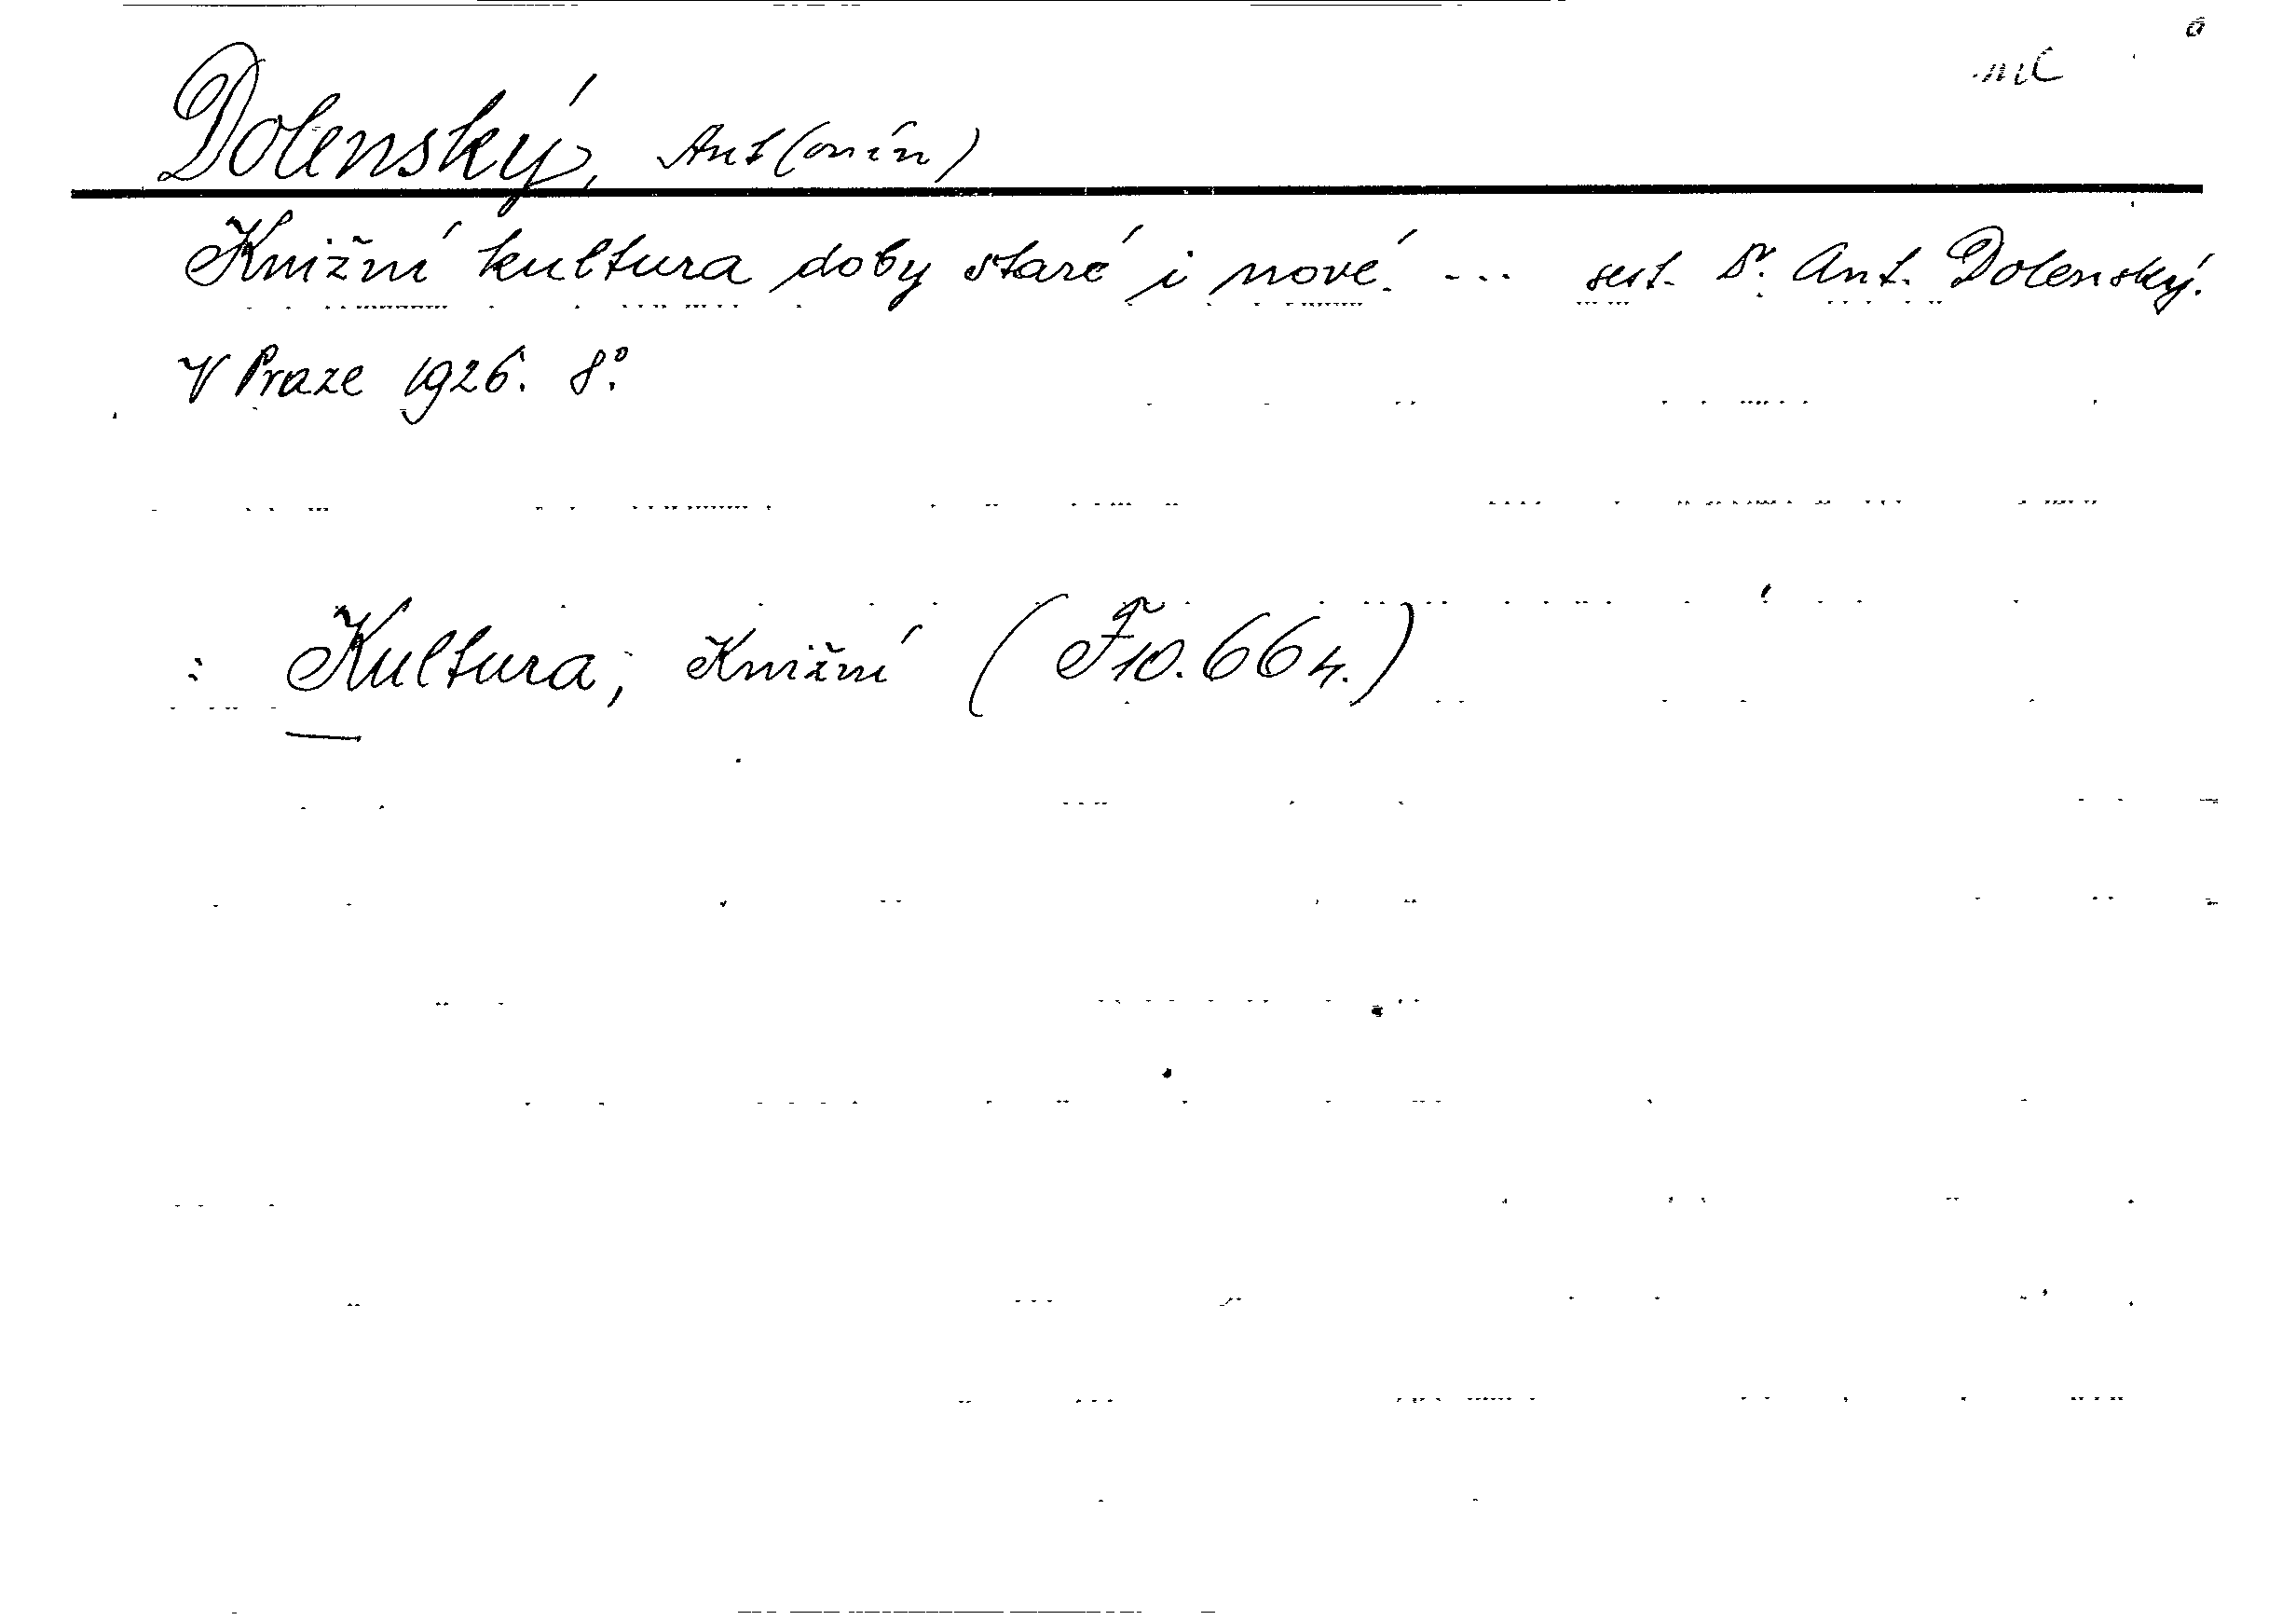 Dolenský, Ant(onín)
Knižní kultura doby staré i nové. ... sest. Dr. Ant. Dolenský.
V Praze 1926. 8°.
: Kultura, Knižní (F 10.664.)